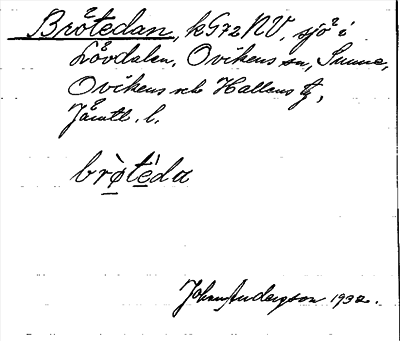 Brötedan, kG72NV, sjö i
Lövdalen, Ovikens sn, Sunne,
Ovikens och Hallens tg,
Jämtl. l.
brø̀téda
John Anderzson 1932.